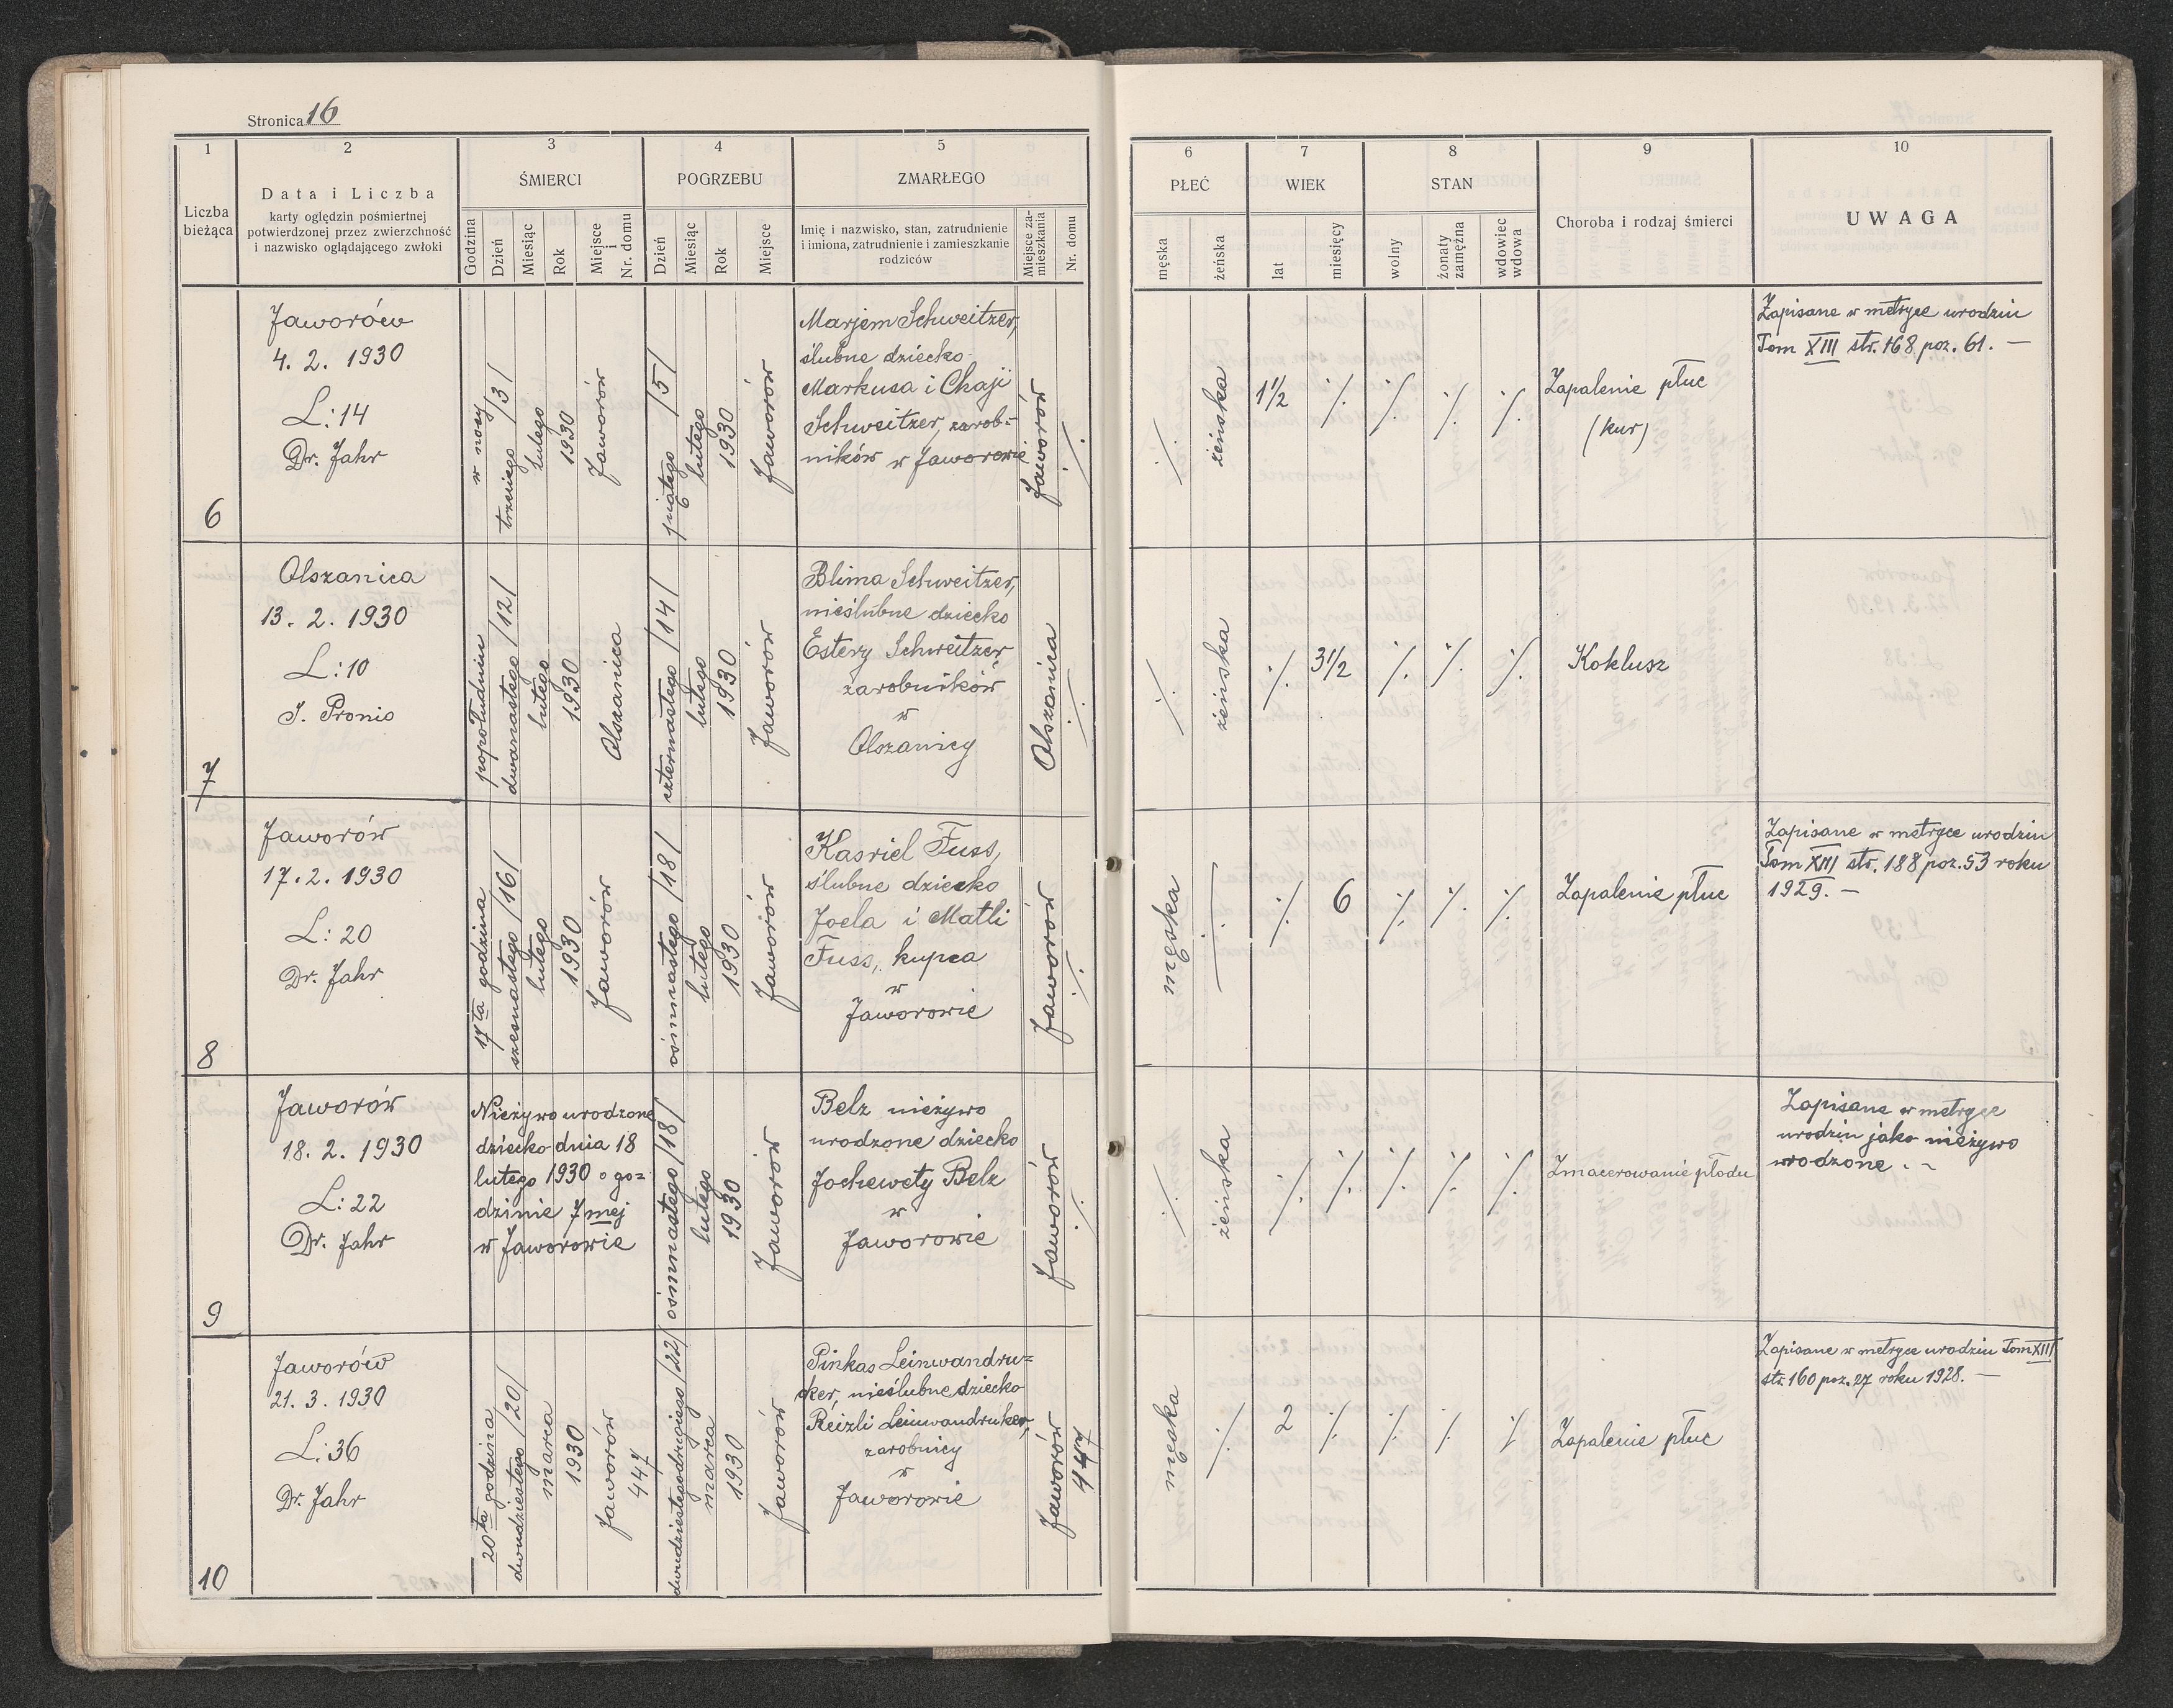 Stronica 16
1
2
3
4
5
Liczba
bieżąca
Data i Liczba
karty oględzin pośmiertnej
potwierdzonej przez zwierzchność
i nazwisko oglądającego zwłoki
ŚMIERCI
Godzina
Dzień
Miesiąc
Rok
Miejsce
i
Nr. domu
POGRZEBU
Dzień
Miesiąc
Rok
Miejsce
ZMARŁEGO
Imię i nazwisko, stan, zatrudnienie
i imiona, zatrudnienie i zamieszkanie
rodziców
Miejsce za-
mieszkania
Nr. domu
6
7
8
9
10
PŁEĆ
męska
żeńska
WIEK
lat
miesięcy
STAN
wolny
żonaty
zamężna
wdowiec
wdowa
Choroba i rodzaj śmierci
UWAGA
6
Jaworów
4. 2. 1930
L: 14
Dr. Jahr
w nocy
trzeciego /3/
lutego
1930
Jaworów
piątego /5/
lutego
1930
Jaworów
Marjem Schweitzer,
ślubne dziecko
Markusa i Chaji
Schweitzer, zarob-
ników w Jaworowie
Jaworów
./.
./.
żeńska
1 1/2
./.
./.
./.
./.
Zapalenie płuc
(kur)
Zapisane w metryce urodzin
Tom XIII str. 168 poz. 61. —
7
Olszanica
13. 2. 1930
L: 10
J. Pronio
popołudniu
dwanastego /12/
lutego
1930
Olszanica
czternastego /14/
lutego
1930
Jaworów
Blima Schweitzer,
nieślubne dziecko
Estery Schweitzer
zarobników
w
Olszanicy
Olszanica
./.
./.
żeńska
./.
3 1/2
./.
./.
./.
Koklusz
8
Jaworów
17. 2. 1930
L: 20
Dr. Jahr
17ta godzina
szesnastego /16/
lutego
1930
Jaworów
ośmnastego /18/
lutego
1930
Jaworów
Kasriel Fuss,
ślubne dziecko
Joela i Matli
Fuss, kupca
w
Jaworowie
Jaworów
./.
męska
./.
./.
6
./.
./.
./.
Zapalenie płuc
Zapisane w metryce urodzin
Tom XIII str. 188 poz. 53 roku
1929. —
9
Jaworów
18. 2. 1930
L: 22
Dr. Jahr
Nieżywo urodzone
dziecko dnia 18
lutego 1930 o go=
dzinie 7mej
w Jaworowie
ośmnastego /18/
lutego
1930
Jaworów
Belz nieżywo
urodzone dziecko
Jochewety Belz
w
Jaworowie
Jaworów
./.
./.
żeńska
./.
./.
./.
./.
./.
Zmacerowanie płodu
Zapisane w metryce
urodzin jako nieżywo
urodzone. —
10
Jaworów
21. 3. 1930
L: 36
Dr. Jahr
20ta godzina
dwudziestego /20/
marca
1930
Jaworów
447
dwudziestegodrugiego /22/
marca
1930
Jaworów
Pinkas Leinwandru=
ker, nieślubne dziecko
Reizli Leinwandruker,
zarobnicy
w
Jaworowie
Jaworów
447
męska
./.
2
./.
./.
./.
./.
Zapalenie płuc
Zapisane w metryce urodzin Tom XIII
str. 160 poz. 27 roku 1928. —